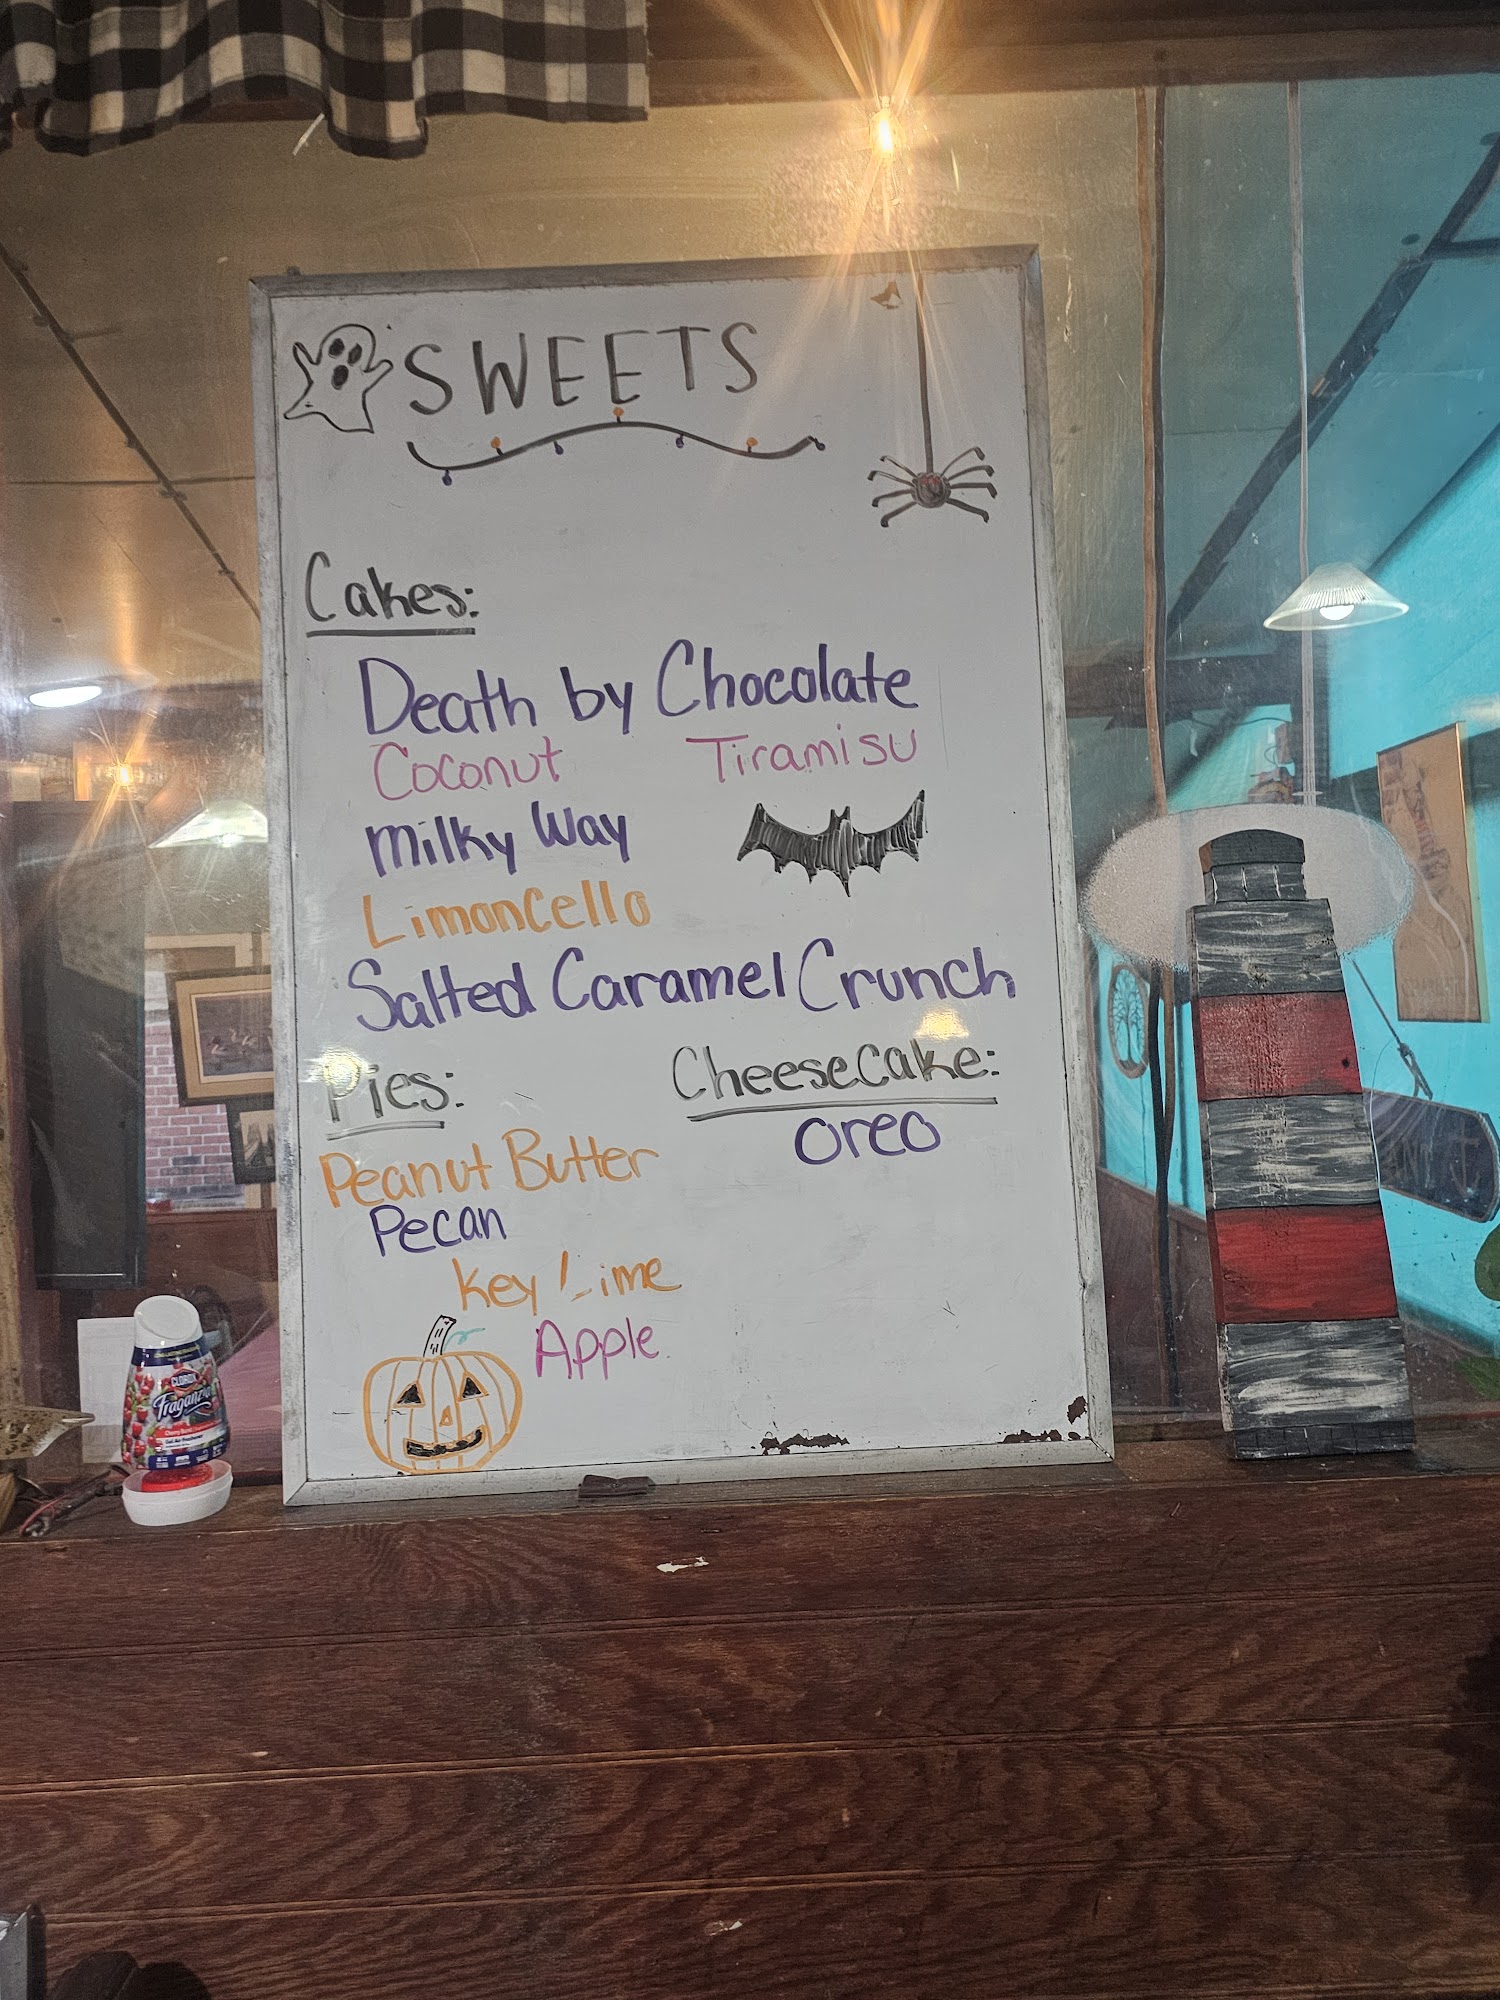 SWEETS
Cakes:
Death by Chocolate
Coconut Tiramisu
Milky Way
Limoncello
Salted Caramel Crunch
Pies:
Peanut Butter
Pecan
Key Lime
Apple
CheeseCake:
Oreo
CLOROX
Fraganzia